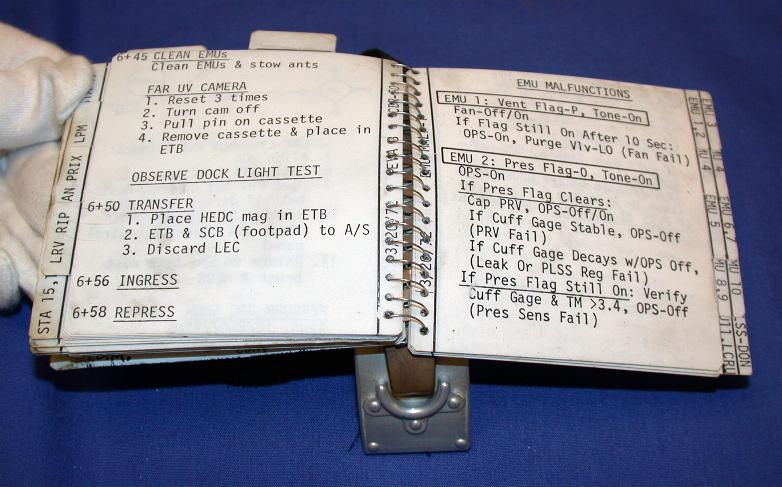 6+45 CLEAN EMUs
Clean EMUs & stow ants
FAR UV CAMERA
1. Reset 3 times
2. Turn cam off
3. Pull pin on cassette
4. Remove cassette & place in
ETB
OBSERVE DOCK LIGHT TEST
6+50 TRANSFER
1. Place HEDC mag in ETB
2. ETB & SCB (footpad) to A/S
3. Discard LEC
6+56 INGRESS
6+58 REPRESS
LPM
AN PRIX
LRV RIP
STA 15,1
3/20/72
EVA 3
CDR-
EMU MALFUNCTIONS
EMU 1: Vent Flag-P, Tone-On
Fan-Off/On
If Flag Still On After 10 Sec:
OPS-On, Purge Vlv-LO (Fan Fail)
EMU 2: Pres Flag-O, Tone-On
OPS-On
If Pres Flag Clears:
Cap PRV, OPS-Off/On
If Cuff Gage Stable, OPS-Off
(PRV Fail)
If Cuff Gage Decays w/OPS Off,
(Leak Or PLSS Reg Fail)
If Pres Flag Still On: Verify
Cuff Gage & TM >3.4, OPS-Off
(Pres Sens Fail)
3/20/72
EMU 5
EMU 6,7
MU 8,9
MU 10